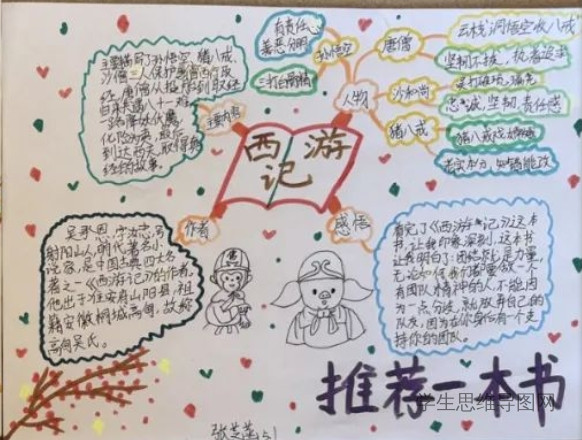 西游记
主要内容
主要描写了孙悟空、猪八戒、
沙僧三人保护唐僧西行取
经,唐僧从投胎到取经
归来共遇八十一难,
一路降妖伏魔,
化险为夷,最后
到达西天,取得真
经的故事。
人物
孙悟空
有责任、
善恶分明
三打白骨精
唐僧
云栈洞悟空收八戒
坚韧不拔,执着追求
沙和尚
忠诚,坚韧,责任感
猪八戒
猪八戒
老实本分,知错能改
作者
吴承恩,字汝忠,号
射阳山人,明代著名小
说家,是中国古典四大名
著之一《西游记》的作者,
他出于淮安府山阳县,祖
籍安徽桐城高甸,故称
高甸吴氏。
感悟
看完了《西游记》这本
书,让我印象深刻,这本书
让我明白了:团结就是力量,
无论如何我们都要做一个
有团队精神的人,不能因
为一点分歧,就放弃自己的
队友,因为在你身后有一个支
持你的团队。
推荐一本书
学生思维导图网